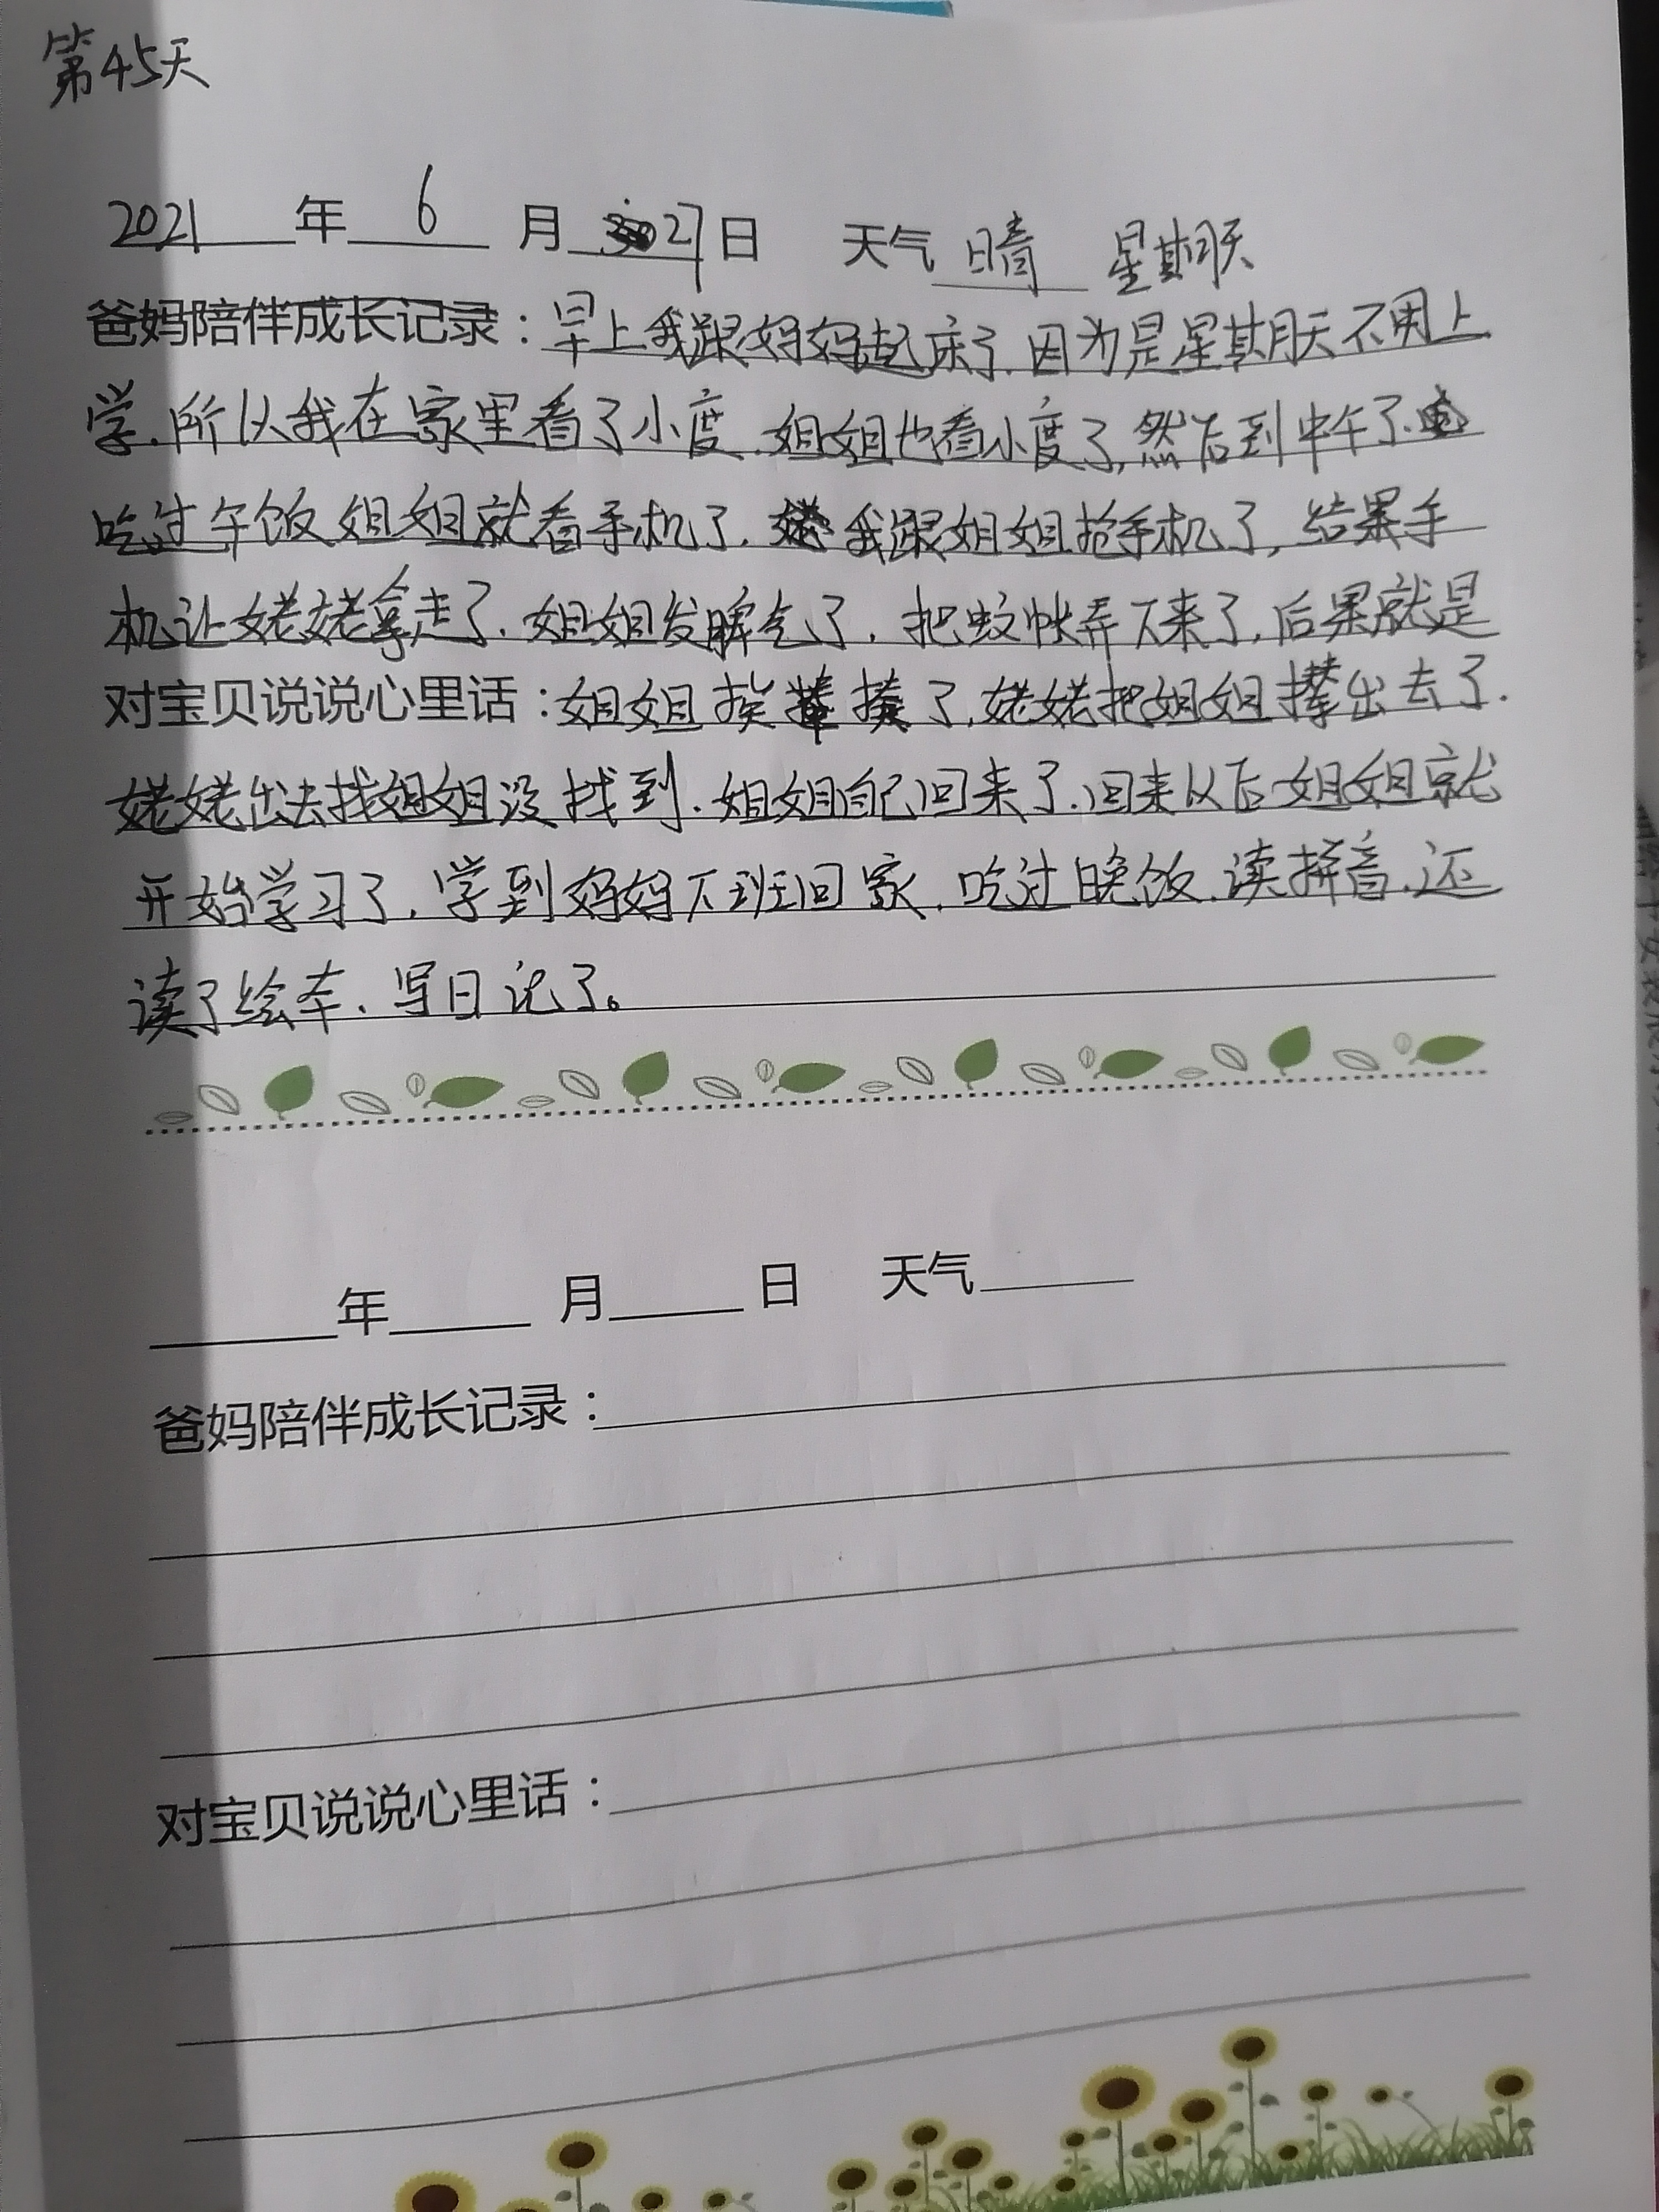 第45天
2021年6月27日 天气晴 星期天
爸妈陪伴成长记录：早上我跟妈妈起床了.因为是星期天不用上
学.所以我在家里看了小度.姐姐也看小度了,然后到中午了.
吃过午饭姐姐就看手机了.我跟姐姐抢手机了,结果手
机让姥姥拿走了.姐姐发脾气了,把蚊帐弄下来了,后果就是
对宝贝说说心里话：姐姐挨揍了,姥姥把姐姐撵出去了.
姥姥出去找姐姐没找到.姐姐自己回来了.回来以后姐姐就
开始学习了.学到妈妈下班回家.吃过晚饭.读拼音.还
读了绘本.写日记了。
年 月 日 天气
爸妈陪伴成长记录：
对宝贝说说心里话：